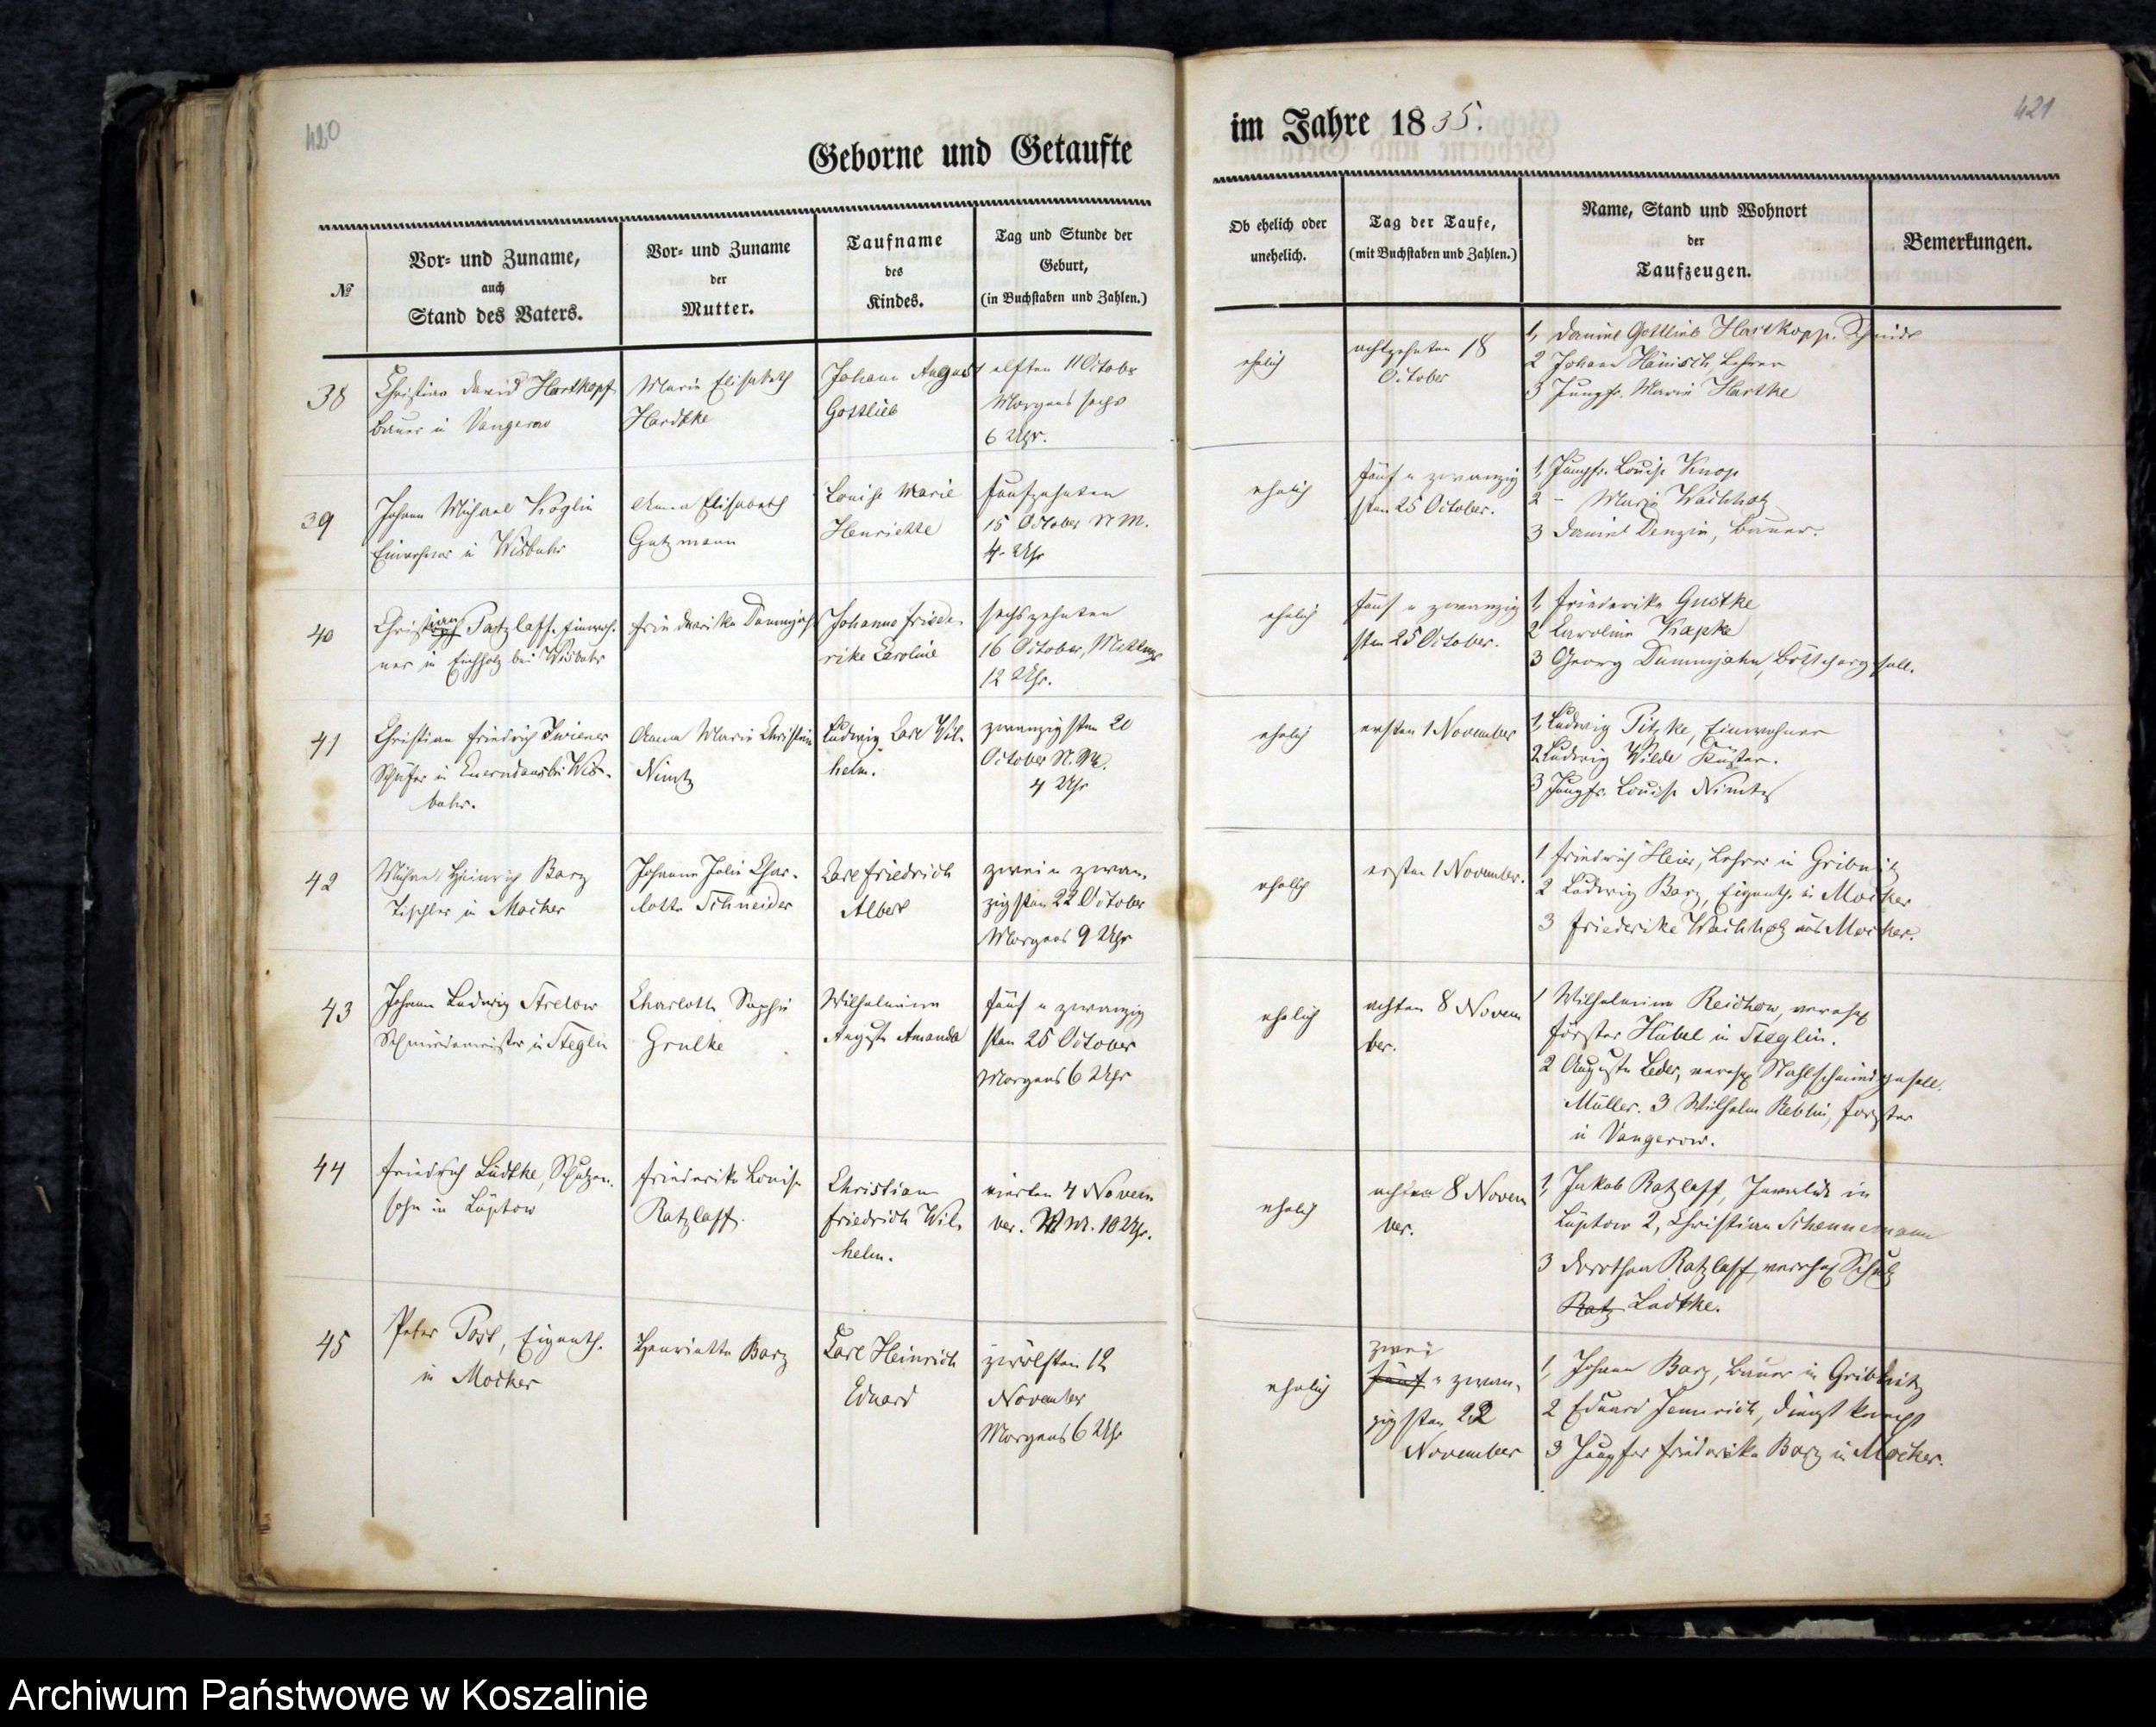 420
Geborne und Getaufte
№
Vor- und Zuname,
auch
Stand des Vaters.
Vor- und Zuname
der
Mutter.
Taufname
des
Kindes.
Tag und Stunde der
Geburt,
(in Buchstaben und Zahlen.)
38
Christian David Hartkopf
Bauer in Vangerow
Marie Elisabeth
Hardtke
Johann August
Gottlieb
elften 11 October
Morgens sechs
6 Uhr.
39
Johann Michael Köglin
Einwohner in Wisbuhr
Anna Elisabeth
Gutzmann
Louise Marie
Henriette
fünfzehnten
15 October N M.
4 Uhr
40
Christian Ratzlaff, Einwoh-
ner in Eichholz bei Wisbuhr
Friederike Dummjahn
Johanne Friede-
rike Caroline
sechszehnten
16 October, Mittags
12 Uhr.
41
Christian Friedrich
Schäfer in bei Wis-
buhr.
Anna Marie Christine
Nimtz
Ludwig Carl Wil-
helm.
zwanzigsten 20
October N. M.
4 Uhr
42
Michael Heinrich Barz
Tischler in Mocker
Johanne Julie Char-
lotte Schneider
Carl Friedrich
Albert
zwei u zwan-
zigsten 22 October
Morgens 9 Uhr
43
Johann Ludwig Strelow
Schmiedemeister in Steglin
Charlotte Sophie
Grulke
Wilhelmine
Auguste Amanda
fünf u zwanzig
sten 25 October
Morgens 6 Uhr
44
Friedrich Lüdtke, Schulzen-
sohn in Lüptow
Friederike Louise
Ratzlaff.
Christian
Friedrich Wil-
helm.
vierten 4 Novem
ber. 10 Uhr.
45
Peter Post, Eigenth.
in Mocker
Henriette Barz
Carl Heinrich
Eduard
zwölften 12
November
Morgens 6 Uhr
im Jahre 1835.
421
Ob ehelich oder
unehelich.
Tag der Taufe,
(mit Buchstaben und Zahlen.)
Name, Stand und Wohnort
der
Taufzeugen.
Bemerkungen.
ehelich
achtzehnten 18
October
1, Daniel Gottlieb Hartkopp. Schmidt
2 Johann Hänisch, Lehrer
3 Jungfr. Marie Hartke
ehelich
fünf u zwanzig
sten 25 October.
1, Jungfr. Louise Knop
2 - Marie Wachholz
3 Daniel Denzin, Bauer.
ehelich
fünf u zwanzig
sten 25 October.
1, Friederike Gustke
2 Caroline Kapke
3 Georg Dummjahn, Böttchergesell.
ehelich
ersten 1 November
1, Ludwig Pitzke, Einwohner
2 Ludwig Wilde Küster.
3 Jungfr. Louise Nimtz
ehelich
ersten 1 November.
1 Friedrich Heier, Lehrer in Gribnitz
2 Ludwig Barz, Eigenth. in Mocker
3 Friederike Wachholz aus Mocker.
ehelich
achten 8 Novem
ber.
1 Wilhelmine Reichow, verehel
Förster Hübel in Steglin.
2 Auguste Leder, verehel. Stahlschmiedgesell.
Müller. 3 Wilhelm Reblin, Förster
in Vangerow.
ehelich
achten 8 Novem
ber.
1, Jakob Ratzlaff, Invalide in
Lüptow 2, Christian Schennemann
3 Dorothea Ratzlaff, verehel Schulz
Ratz Ludtke.
ehelich
zwei
fünf u zwan-
zigsten 22
November
1, Johann Barz, Bauer in Gribnitz
2 Eduard Jennrich, Dienstknecht
3 Jungfer Friederike Barz in Mocker.
Archiwum Państwowe w Koszalinie